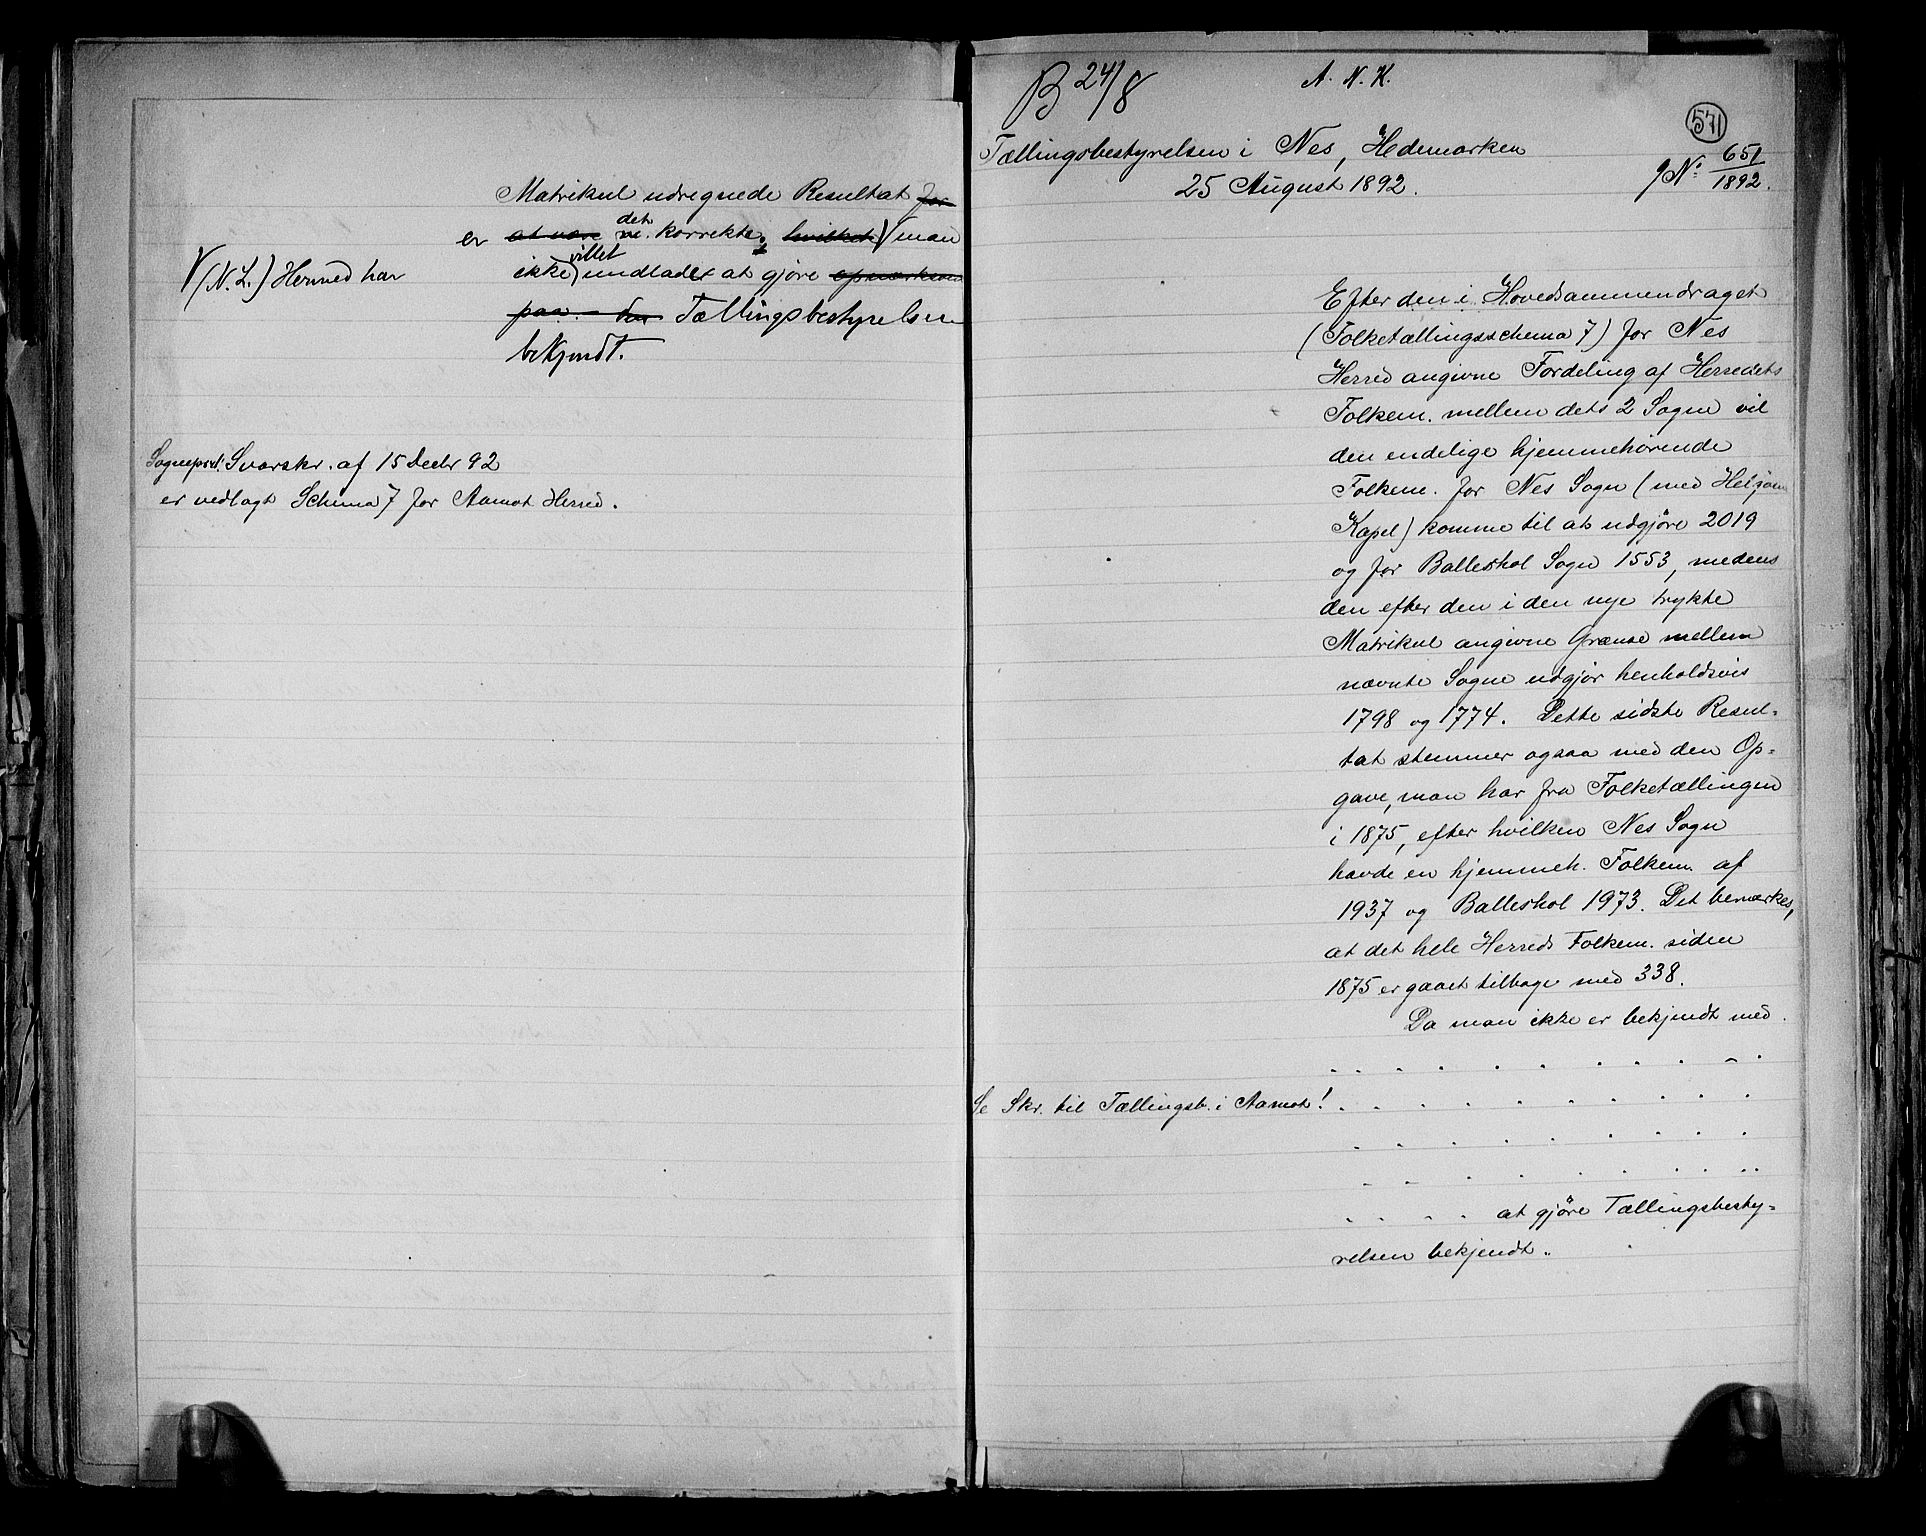 Matrikul udregnede Resultat for
er at være det korrekte, hvilket man
V (N. L.) Hermed har
ikke villet undladet at gjøre opmærksom
paa - den Tællingsbestyrelsen
bekjendt.
Sognepræst. Svarskr. af 15 Decbr 92
er vedlagt Schema 7 for Aamot Herred.
B 24/8
A. N. K.
571
Tællingsbestyrelsen i Nes, Hedemarken
25 August 1892.
JNo: 651/1892.
Efter den i Hovedsammendraget
(Folketællingsschema 7) for Nes
Herred angivne Fordeling af Herredets
Folkem. mellem dets 2 Sogne vil
den endelige hjemmehørende
Folkem. for Nes Sogn (med Helgøens
Kapel) komme til at udgjøre 2019
og for Balleshol Sogn 1553, medens
den efter den i den nye trykte
Matrikul angivne Grænse mellem
nævnte Sogne udgjør henholdsvis
1798 og 1774. Dette sidste Resul-
tat stemmer ogsaa med den Op-
gave, man har fra Folketællingen
i 1875, efter hvilken Nes Sogn
havde en hjemmeh. Folkem. af
1937 og Balleshol 1973. Det bemærkes,
at det hele Herreds Folkem. siden
1875 er gaaet tilbage med 338.
Da man ikke er bekjendt med
Se Skr. til Tællingsb. i Aamot!
at gjøre Tællingsbesty-
relsen bekjendt.